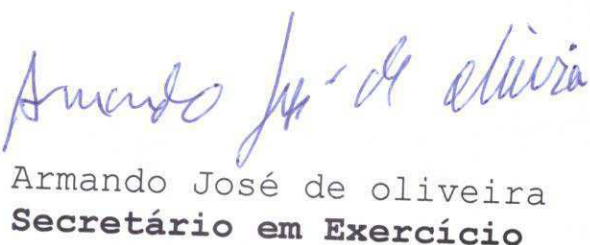 Armando José de oliveira
Armando José de oliveira
Secretário em Exercício